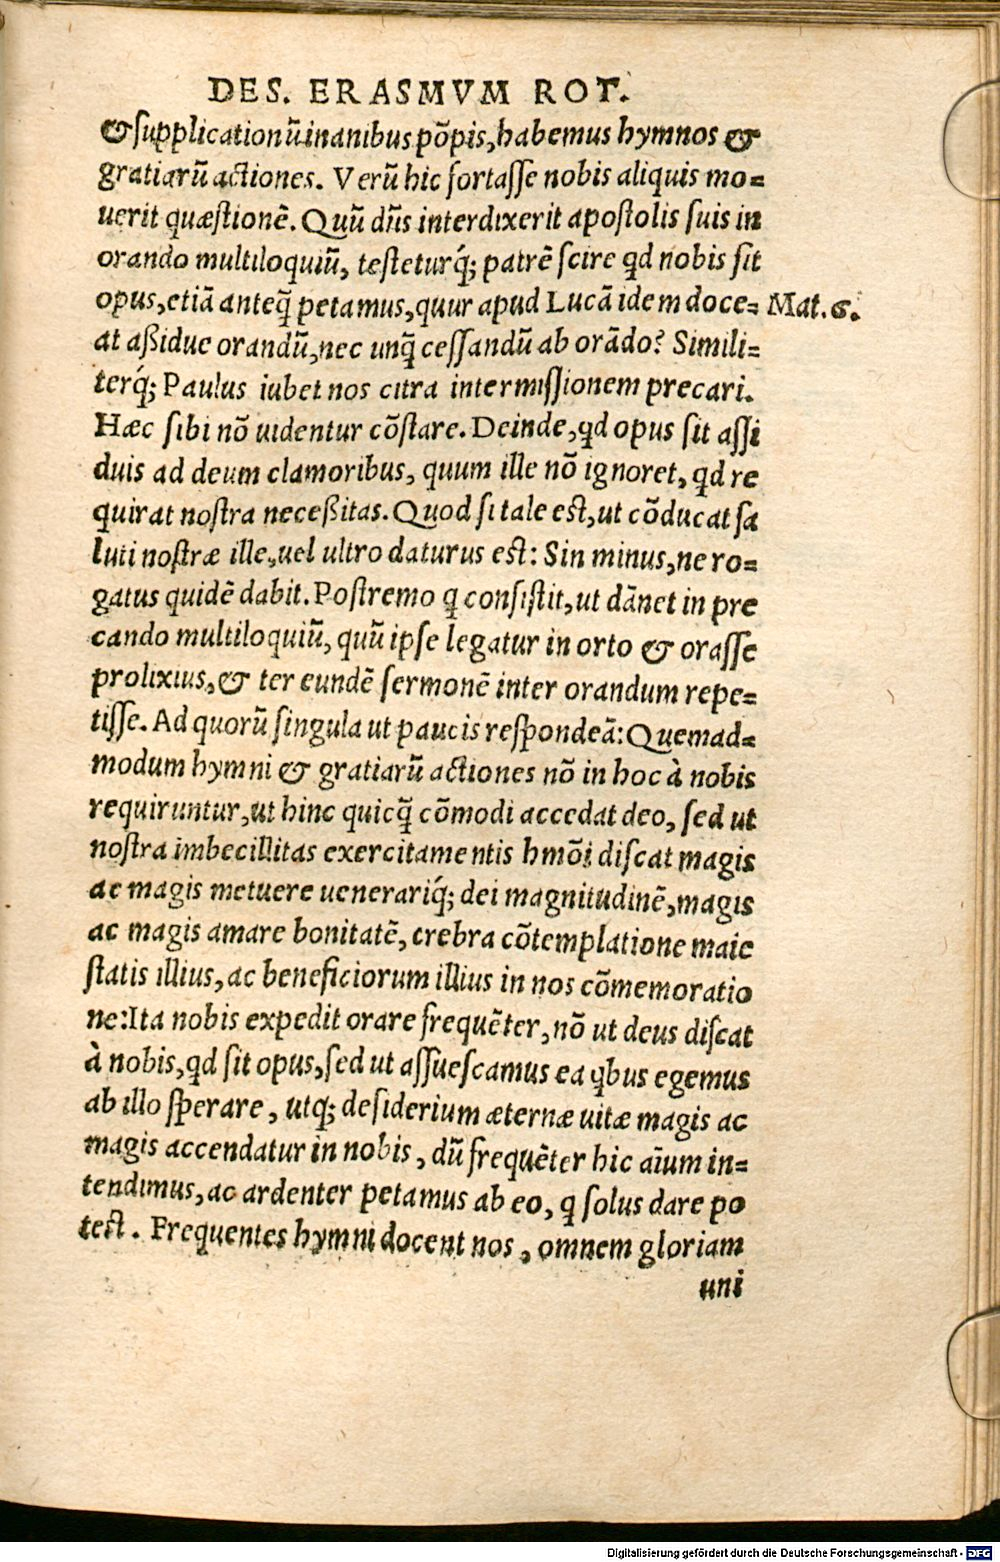 DES. ERASMVM ROT.
& supplicationũ inanibus põpis, habemus hymnos &
gratiarũ actiones. Verũ hic fortasse nobis aliquis mo=
uerit quæstionẽ. Quũ dñs interdixerit apostolis suis in
orando multiloquiũ, testeturq́; patrẽ scire qd nobis sit
opus, etiã anteq̃ petamus, quur apud Lucã idem doce= Mat. 6.
at aßidue orandũ, nec unq̃ cessandũ ab orãdo? Simili=
terq́; Paulus iubet nos citra intermissionem precari.
Hæc sibi nõ uidentur cõstare. Deinde, qd opus sit assi
duis ad deum clamoribus, quum ille nõ ignoret, qd re
quirat nostra neceßitas. Quod si tale est, ut cõducat sa
luti nostræ ille, uel ultro daturus est: Sin minus, ne ro=
gatus quidẽ dabit. Postremo q consistit, ut dãnet in pre
cando multiloquiũ, quũ ipse legatur in orto & orasse
prolixius, & ter eundẽ sermonẽ inter orandum repe=
tisse. Ad quorũ singula ut paucis respondeã: Quemad=
modum hymni & gratiarũ actiones nõ in hoc à nobis
requiruntur, ut hinc quicq̃ cõmodi accedat deo, sed ut
nostra imbecillitas exercitamentis hmõi discat magis
ac magis metuere uenerariq́; dei magnitudinẽ, magis
ac magis amare bonitatẽ, crebra cõtemplatione maie
statis illius, ac beneficiorum illius in nos cõmemoratio
ne: Ita nobis expedit orare frequẽter, nõ ut deus discat
à nobis, qd sit opus, sed ut assuescamus ea qbus egemus
ab illo sperare, utq; desiderium æternæ uitæ magis ac
magis accendatur in nobis, dũ frequẽter hic aĩum in=
tendimus, ac ardenter petamus ab eo, q solus dare po
test. Frequentes hymni docent nos, omnem gloriam
uni
Digitalisierung gefördert durch die Deutsche Forschungsgemeinschaft - DFG